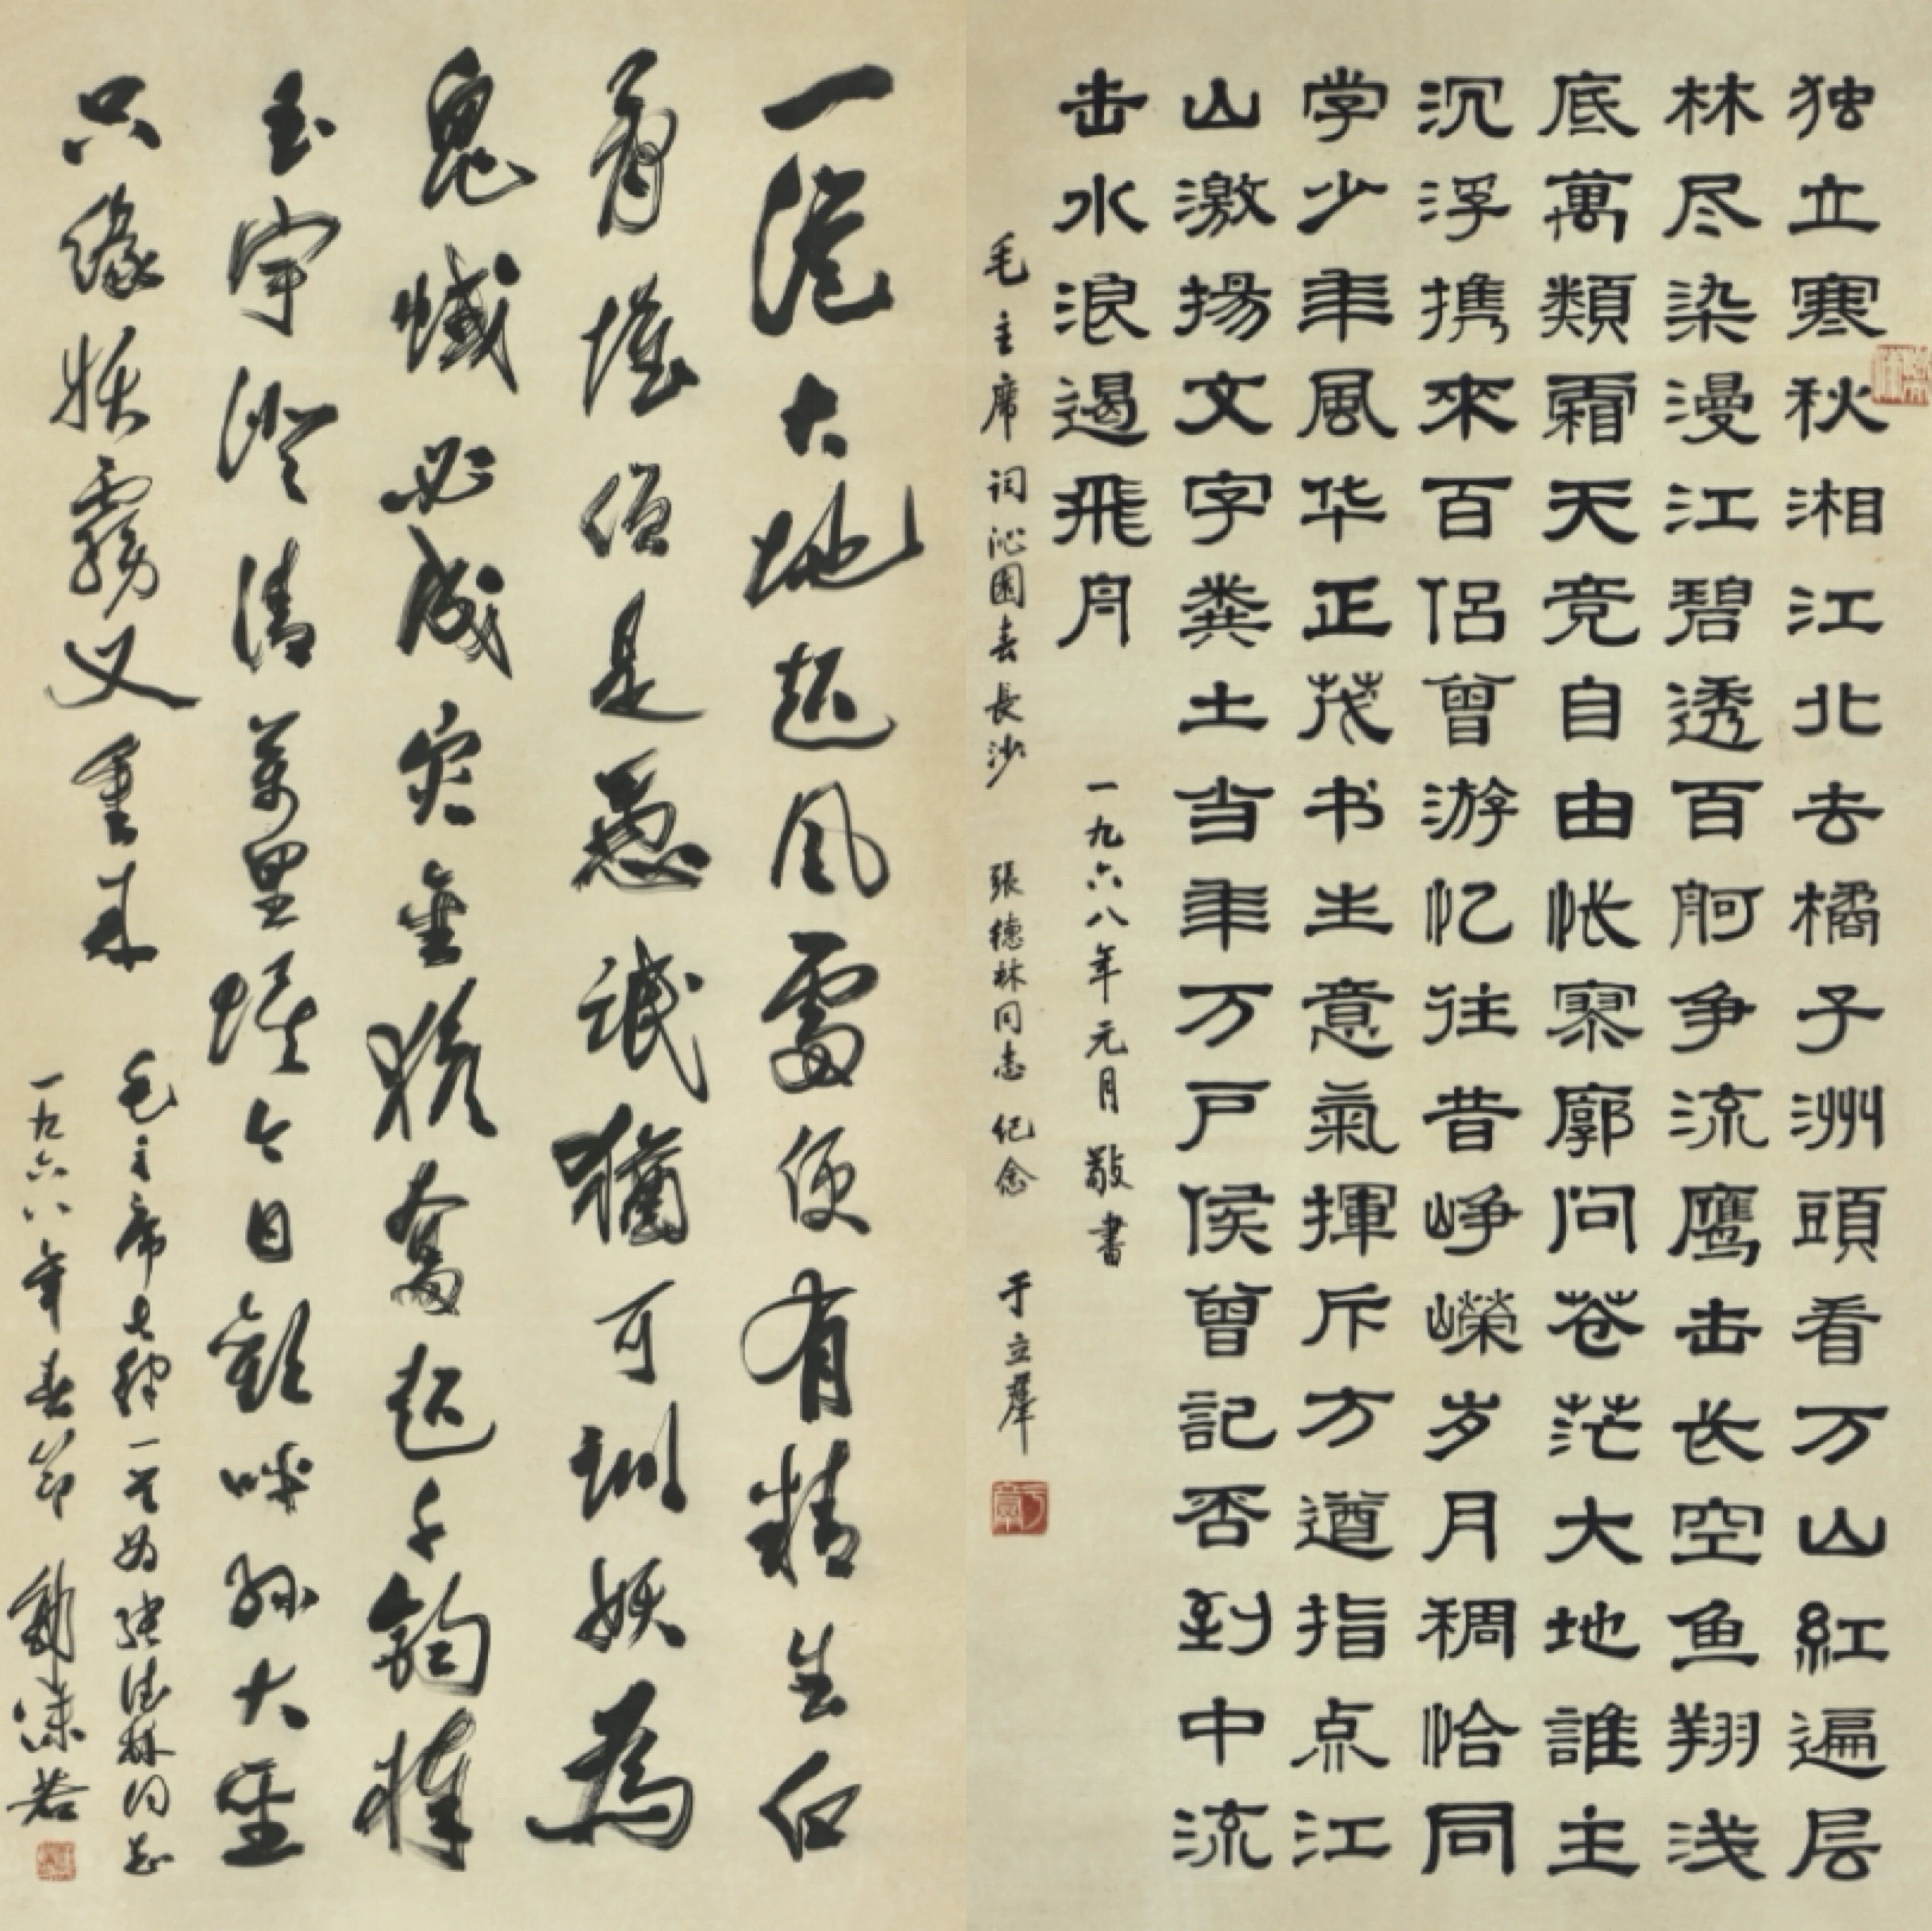 独立寒秋湘江北去橘子洲頭看万山紅遍层
林尽染漫江碧透百舸争流鹰击长空鱼翔浅
底萬類霜天竞自由怅寥廓问苍茫大地誰主
沉浮携來百侣曾游忆往昔峥嶸岁月稠恰同
学少年風华正茂书生意氣揮斥方遒指点江
山激揚文字粪土当年万戸侯曾記否到中流
击水浪遏飛舟 一九六八年元月敬書
毛主席词沁園春長沙 張德林同志纪念 于立羣
一從大地起风雷便有精生白
骨堆僧是愚氓猶可訓妖為
鬼蜮必成灾金猴奮起千鈞棒
玉宇澄清萬里埃今日歡呼孫大聖
只緣妖霧又重來
毛主席七律一首为張德林同志
一九六八年春節 郭沫若